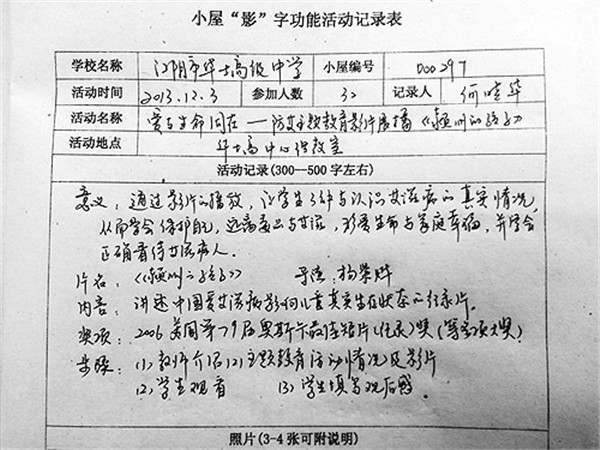 小屋“影”字功能活动记录表
学校名称 江阴市华士高级中学 小屋编号 000297
活动时间 2013.12.3 参加人数 32 记录人 何 华
活动名称 爱与生命同在——防艾主题教育影片展播《颍州的孩子》
活动地点 华士高中心理教室
活动记录(300—500字左右)
意义：通过影片的播放，让学生了解与认识艾滋病的真实情况，
从而学会保护自己，远离毒品与艾滋，珍爱生命与家庭幸福，并学会
正确看待艾滋病人。
片名：《颍州的孩子》 导演：杨紫烨
内容：讲述中国受艾滋病影响儿童真实生存状态的纪录片。
奖项：2006美国第79届奥斯卡最佳短片(纪录)奖(等多项大奖)
步骤：(1)教师介绍(2)主题教育活动情况及影片
(2)学生观看 (3)学生填写观后感。
照片(3-4张可附说明)